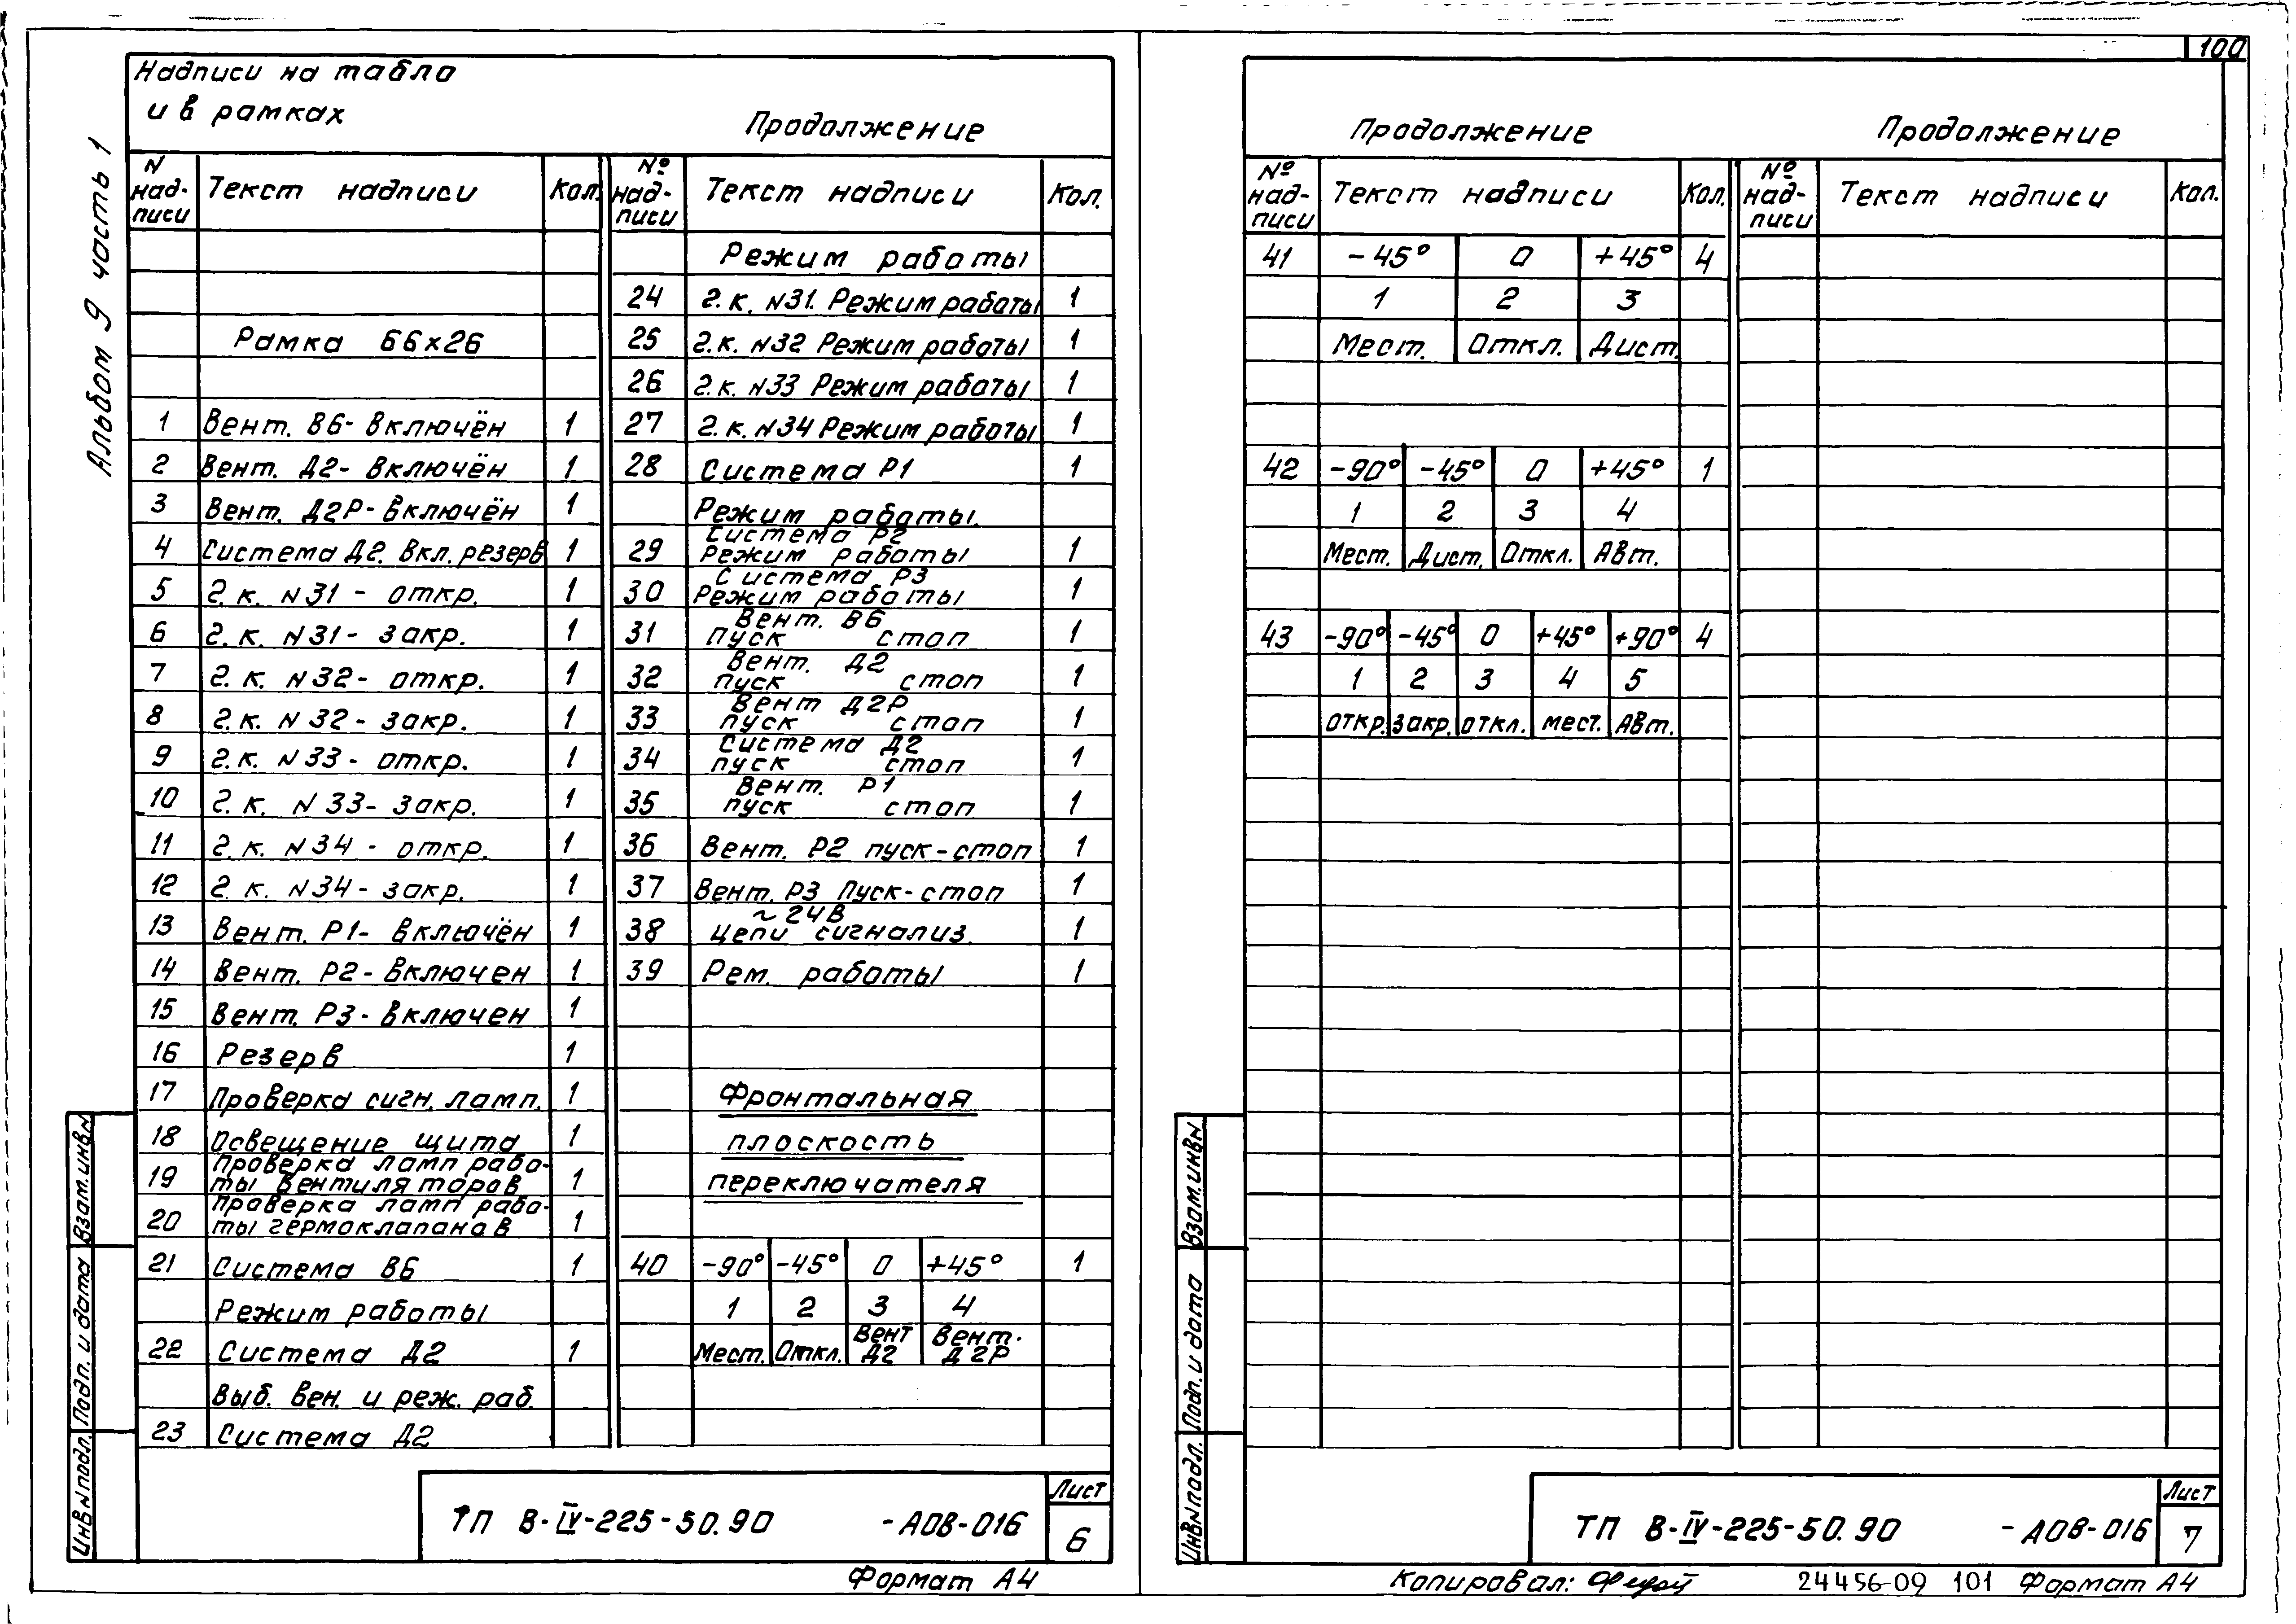 100
Альбом 9 часть 1
Надписи на табло
и в рамках
Продолжение
N надписи Текст надписи Кол.
Рамка 66×26
1 Вент. В6- Включён 1
2 Вент. Д2- Включён 1
3 Вент. Д2Р- Включён 1
4 Система Д2. Вкл. резерв 1
5 г. к. N31 - откр. 1
6 г. к. N31- закр. 1
7 г. к. N32- откр. 1
8 г. к. N32- закр. 1
9 г. к. N33 - откр. 1
10 г. к. N33- закр. 1
11 г. к. N34 - откр. 1
12 г. к. N34- закр. 1
13 Вент. Р1- включён 1
14 Вент. Р2- Включен 1
15 Вент. Р3- Включен 1
16 Резерв 1
17 Проверка сигн. ламп. 1
18 Освещение щита 1
19 Проверка ламп рабо-
ты вентиляторов 1
20 Проверка ламп рабо-
ты гермоклапанов 1
21 Система В6 1
Режим работы
22 Система Д2 1
Выб. вен. и реж. раб.
23 Система Д2
№ надписи Текст надписи Кол.
Режим работы
24 г. к. N31. Режим работы 1
25 г. к. N32 Режим работы 1
26 г. к. N33 Режим работы 1
27 г. к. N34 Режим работы 1
28 Система Р1 1
Режим работы.
Система Р2
29 Режим работы 1
Система Р3
30 Режим работы 1
Вент. В6
31 пуск стоп 1
Вент. Д2
32 пуск стоп 1
Вент Д2Р
33 пуск стоп 1
Система Д2
34 пуск стоп 1
Вент. Р1
35 пуск стоп 1
36 Вент. Р2 пуск-стоп 1
37 Вент. Р3 Пуск-стоп 1
~24В
38 цепи сигнализ. 1
39 Рем. работы 1
Фронтальная
плоскость
переключателя
40 -90° -45° 0 +45° 1
1 2 3 4
Мест. Откл. Вент Д2 Вент. Д2Р
Взам. инв N
Подп. и дата
Инв N подл.
ТП В-IV-225-50.90 -АОВ-016
Лист
6
Формат А4
Продолжение
Продолжение
№ надписи Текст надписи Кол.
№ надписи Текст надписи Кол.
41 -45° 0 +45° 4
1 2 3
Мест. Откл. Дист.
42 -90° -45° 0 +45° 1
1 2 3 4
Мест. Дист. Откл. Авт.
43 -90° -45° 0 +45° +90° 4
1 2 3 4 5
откр. закр. откл. мест. Авт.
Взам. инв N
Подп. и дата
Инв N подл.
ТП В-IV-225-50.90 -АОВ-016
Лист
7
Копировал:
24456-09 101 Формат А4